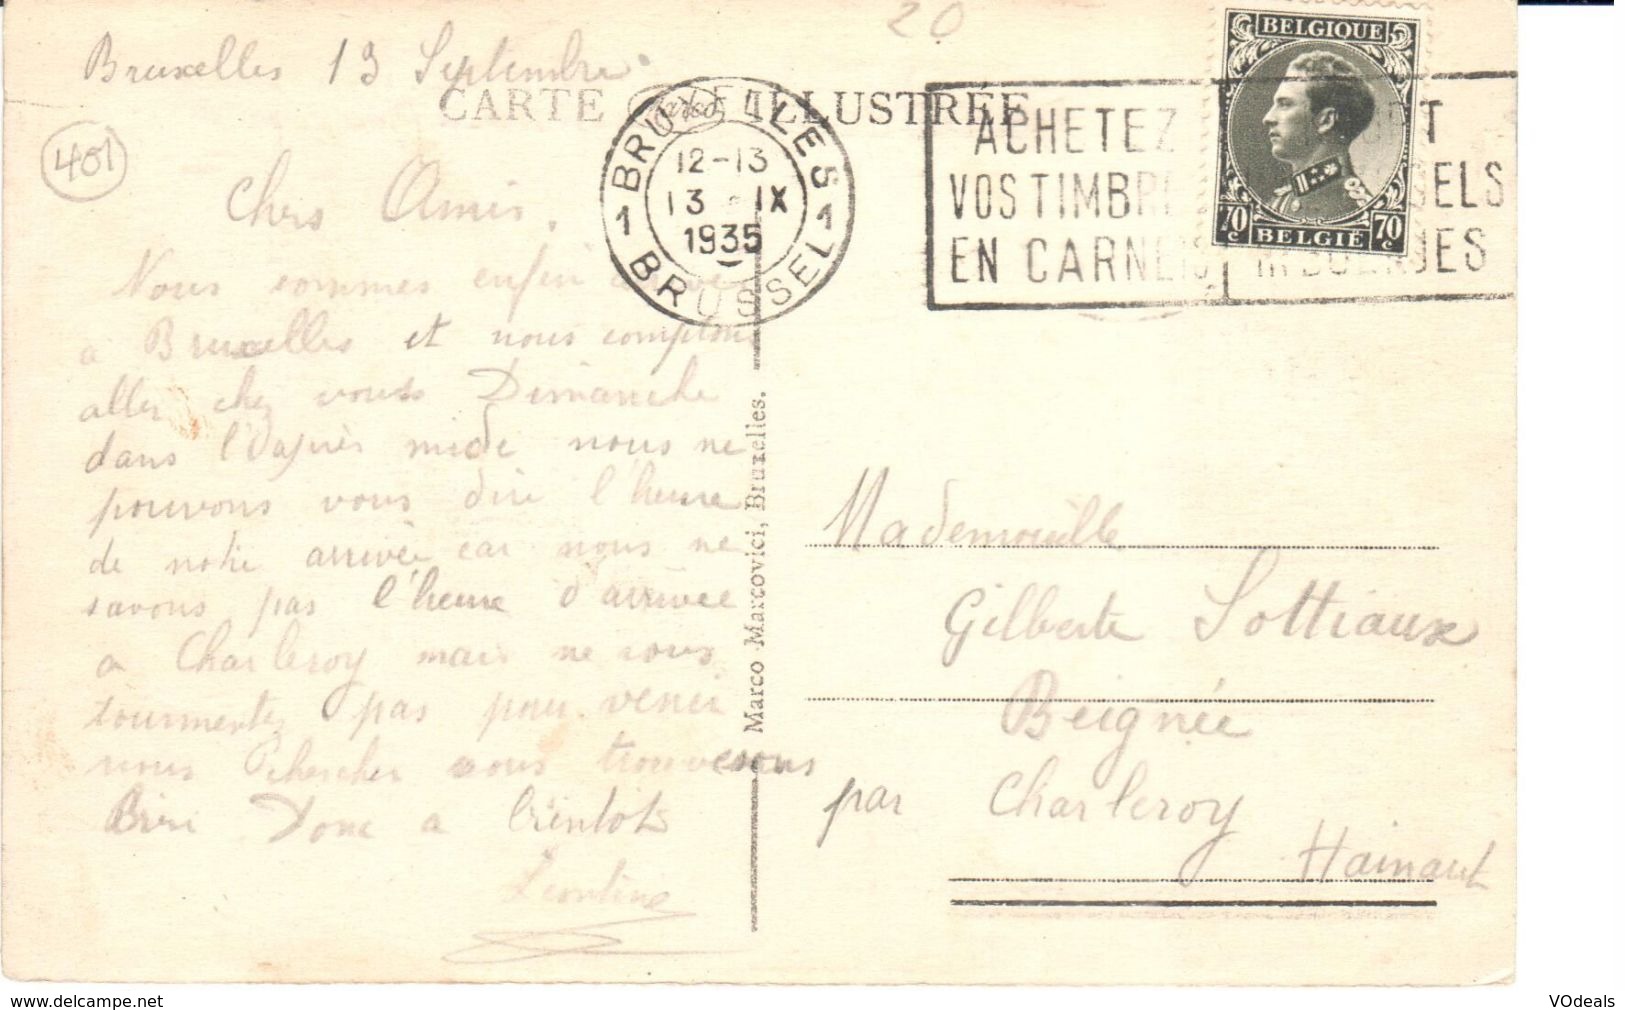 20
Bruxelles 13 Septembre
CARTE ILLUSTRÉE
401
BRUXELLES
12-13
13 IX
1935
1 1
BRUSSEL
ACHETEZ
VOS TIMBRE
EN CARNETS
BELGIQUE
70c 70c
BELGIË
Chers Amis,
Nous sommes enfin arrivé
a Bruxelles et nous comptons
aller chez vous Dimanche
dans l'après midi nous ne
pouvons vous dire l'heure
de notre arrivée car nous ne
savons pas l'heure d'arrivée
a Charleroy mais ne vous
tourmentez pas pour venir
nous chercher nous trouverons
Bien Donc a bientot
Leontine
Marco Marcovici, Bruxelles.
Mademoiselle
Gilberte Sottiaux
Beignée
par Charleroy
Hainaut
www.delcampe.net
VOdeals